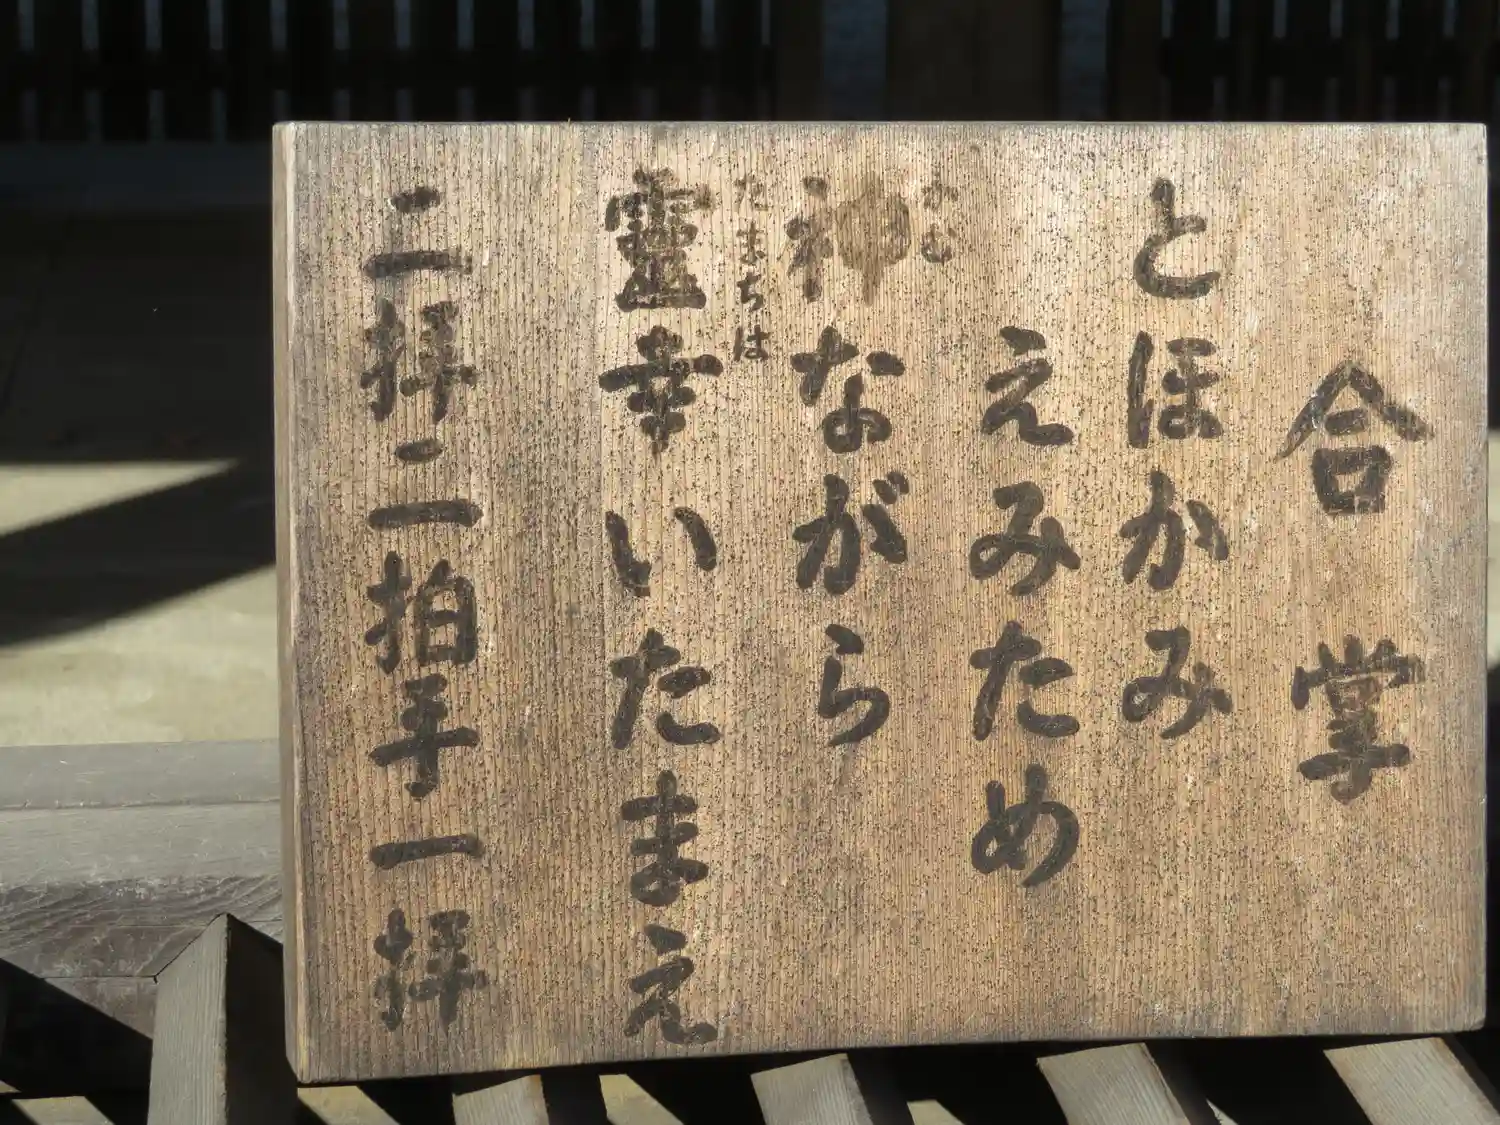 合掌
とほかみ
えみため
かむ
神ながら
たまちは
靈幸いたまえ
二拝二拍手一拝